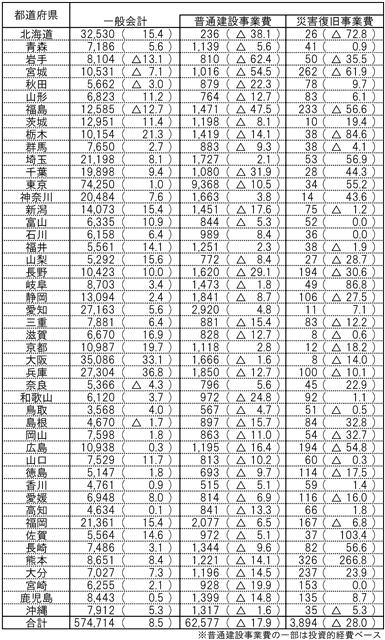 都道府県 一般会計 普通建設事業費 災害復旧事業費
北海道 32,530 ( 15.4 ) 236 ( △ 38.1 ) 26 ( △ 72.8 )
青森 7,186 ( 5.6 ) 1,139 ( △ 5.6 ) 41 ( 0.9 )
岩手 8,104 ( △13.1 ) 810 ( △ 62.4 ) 50 ( △ 35.5 )
宮城 10,531 ( △ 7.1 ) 1,016 ( △ 54.5 ) 262 ( △ 61.9 )
秋田 5,662 ( △ 3.0 ) 879 ( △ 22.3 ) 78 ( 9.7 )
山形 6,823 ( 11.2 ) 764 ( △ 12.7 ) 83 ( 6.1 )
福島 12,585 ( △12.7 ) 1,471 ( △ 47.5 ) 233 ( △ 56.6 )
茨城 12,951 ( 11.4 ) 1,198 ( △ 8.1 ) 10 ( 19.4 )
栃木 10,154 ( 21.3 ) 1,419 ( △ 14.1 ) 38 ( △ 84.6 )
群馬 7,650 ( 2.7 ) 883 ( △ 9.3 ) 38 ( △ 4.1 )
埼玉 21,198 ( 8.1 ) 1,727 ( 2.1 ) 53 ( 56.9 )
千葉 19,898 ( 9.4 ) 1,080 ( △ 31.9 ) 28 ( 44.3 )
東京 74,250 ( 1.0 ) 9,368 ( △ 10.5 ) 34 ( 55.2 )
神奈川 20,484 ( 7.6 ) 1,663 ( 3.8 ) 14 ( 43.6 )
新潟 14,073 ( 15.4 ) 1,451 ( △ 17.6 ) 75 ( △ 1.2 )
富山 6,335 ( 10.9 ) 844 ( △ 5.3 ) 52 ( 0.0 )
石川 6,158 ( 6.4 ) 989 ( 8.4 ) 36 ( 0.0 )
福井 5,561 ( 14.1 ) 1,251 ( 2.3 ) 38 ( △ 1.9 )
山梨 5,292 ( 15.6 ) 772 ( △ 8.4 ) 27 ( △ 28.7 )
長野 10,423 ( 10.0 ) 1,620 ( △ 29.1 ) 194 ( △ 30.6 )
岐阜 8,703 ( 3.4 ) 1,473 ( △ 1.8 ) 49 ( 86.8 )
静岡 13,094 ( 2.4 ) 1,841 ( △ 8.7 ) 106 ( △ 27.5 )
愛知 27,163 ( 5.6 ) 2,920 ( 4.8 ) 11 ( 7.1 )
三重 7,881 ( 6.4 ) 881 ( △ 15.4 ) 83 ( △ 12.2 )
滋賀 6,670 ( 16.9 ) 828 ( △ 12.7 ) 8 ( △ 0.6 )
京都 10,987 ( 19.7 ) 1,118 ( 2.8 ) 12 ( △ 18.2 )
大阪 35,086 ( 33.1 ) 1,666 ( △ 1.6 ) 8 ( △ 14.0 )
兵庫 27,304 ( 36.8 ) 1,850 ( △ 12.7 ) 100 ( △ 10.1 )
奈良 5,366 ( △ 4.3 ) 796 ( 5.6 ) 45 ( 22.9 )
和歌山 6,120 ( 3.7 ) 972 ( △ 24.8 ) 92 ( 1.1 )
鳥取 3,568 ( 4.0 ) 567 ( △ 4.7 ) 51 ( △ 0.5 )
島根 4,670 ( △ 1.7 ) 897 ( △ 15.7 ) 84 ( 32.8 )
岡山 7,598 ( 1.8 ) 863 ( △ 11.0 ) 54 ( △ 32.7 )
広島 10,938 ( 0.3 ) 1,195 ( △ 16.4 ) 194 ( △ 54.8 )
山口 7,529 ( 11.7 ) 813 ( △ 10.2 ) 60 ( △ 0.3 )
徳島 5,147 ( 1.8 ) 693 ( △ 9.7 ) 114 ( △ 17.5 )
香川 4,761 ( 0.9 ) 515 ( △ 5.1 ) 59 ( 1.4 )
愛媛 6,948 ( 8.0 ) 814 ( △ 6.9 ) 116 ( △ 16.0 )
高知 4,634 ( 0.1 ) 841 ( △ 13.3 ) 66 ( 1.8 )
福岡 21,361 ( 15.4 ) 2,077 ( △ 6.5 ) 167 ( △ 6.8 )
佐賀 5,564 ( 14.6 ) 972 ( △ 5.1 ) 37 ( 103.4 )
長崎 7,486 ( 3.1 ) 1,344 ( △ 9.6 ) 82 ( 56.6 )
熊本 8,651 ( 8.4 ) 1,221 ( △ 14.1 ) 326 ( 266.8 )
大分 7,027 ( 7.3 ) 1,196 ( △ 14.5 ) 237 ( 23.9 )
宮崎 6,255 ( 2.1 ) 928 ( △ 19.9 ) 153 ( 0.0 )
鹿児島 8,443 ( 0.5 ) 1,399 ( △ 14.8 ) 135 ( 8.7 )
沖縄 7,912 ( 5.3 ) 1,317 ( △ 1.6 ) 35 ( △ 5.3 )
合計 574,714 ( 8.5 ) 62,577 ( △ 17.9 ) 3,894 ( △ 28.0 )
※普通建設事業費の一部は投資的経費ベース